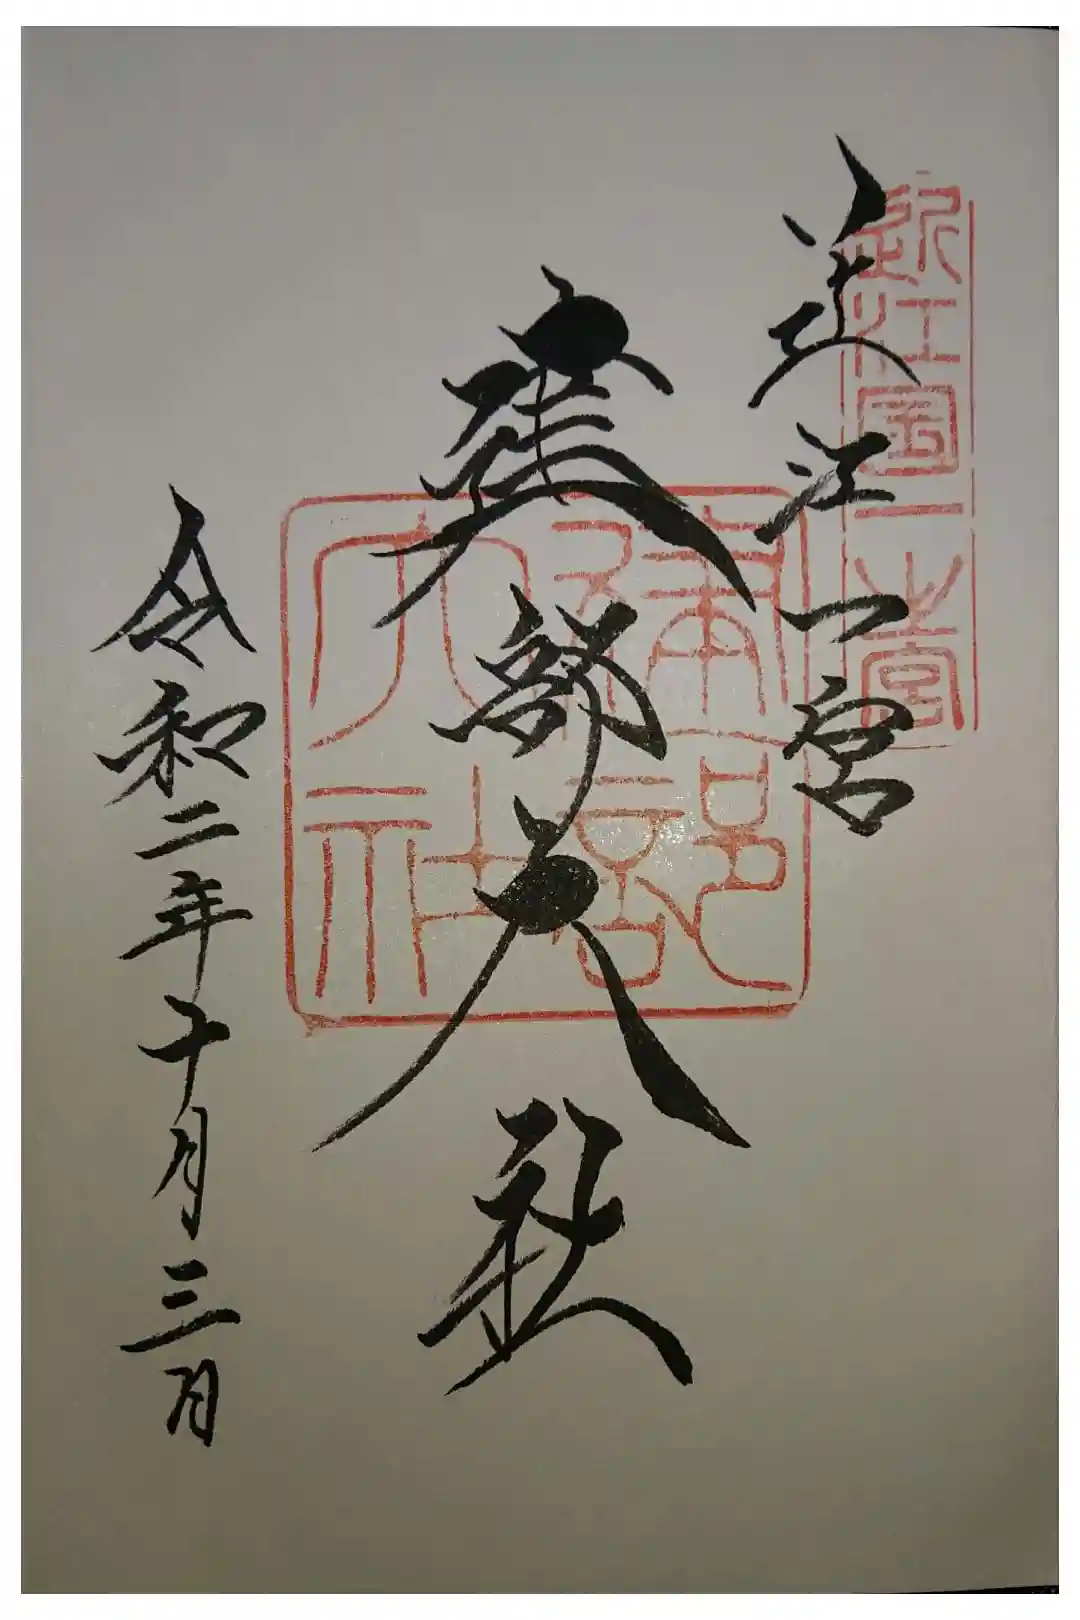 近江国一之宮
近江一宮
建部大社
建部大社
令和二年十月三日